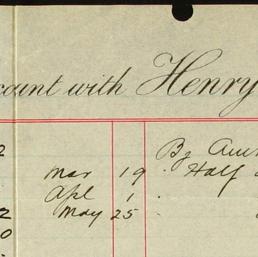 count with Henry
2
By
Mar 19 Half
Apl 1
2 May 25
0